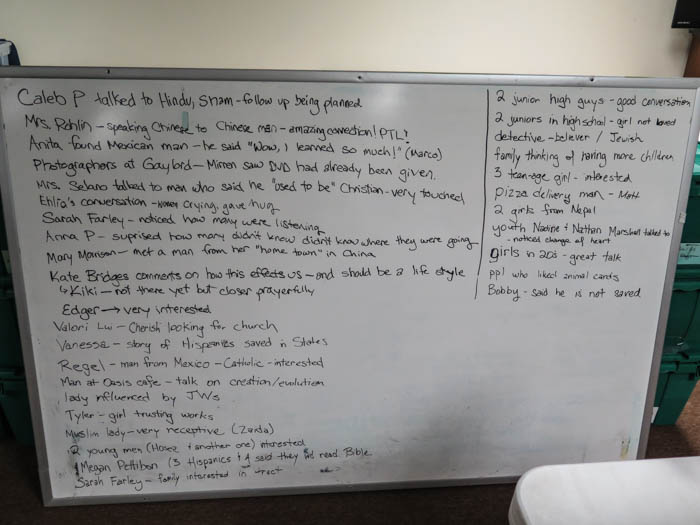 Caleb P talked to Hindu, Sham - follow up being planned
Mrs. Rohlin - speaking Chinese to Chinese man - amazing connection! PTL!
Anita found Mexican man - he said "Wow, I learned so much!" (Marco)
Photographers at Gaylord - Mirren saw DVD had already been given.
Mrs. Selano talked to man who said he "used to be" Christian - very touched
Ehlra's conversation - crying, gave hug
Sarah Farley - noticed how many were listening
Anna P - suprised how many didn't know didn't know where they were going
Mary Morrison - met a man from her "home town" in China
Kate Bridges comments on how this effects us - and should be a life style
↳ Kiki - not there yet but closer prayerfully
Edger → very interested
Valori Lui - Cherish looking for church
Vanessa - story of Hispanics saved in States
Regel - man from Mexico - Catholic - interested
Man at Oasis cafe - talk on creation/evolution
lady influenced by JWs
Tyler - girl trusting works
Muslim lady - very receptive (Zaida)
2 young men (Hosez + another one) interested
Megan Pettibon (3 Hispanics + said they read Bible
Sarah Farley - family interested in tract
2 junior high guys - good conversation
2 juniors in highschool - girl not loved
detective - believer / Jewish
family thinking of having more children
3 teen-age girl - interested
pizza delivery man - Matt
2 girls from Nepal
youth Nadine & Nathan Marshall talked to
- noticed change of heart
girls in 20s - great talk
ppl who liked animal cards
Bobby - said he is not saved